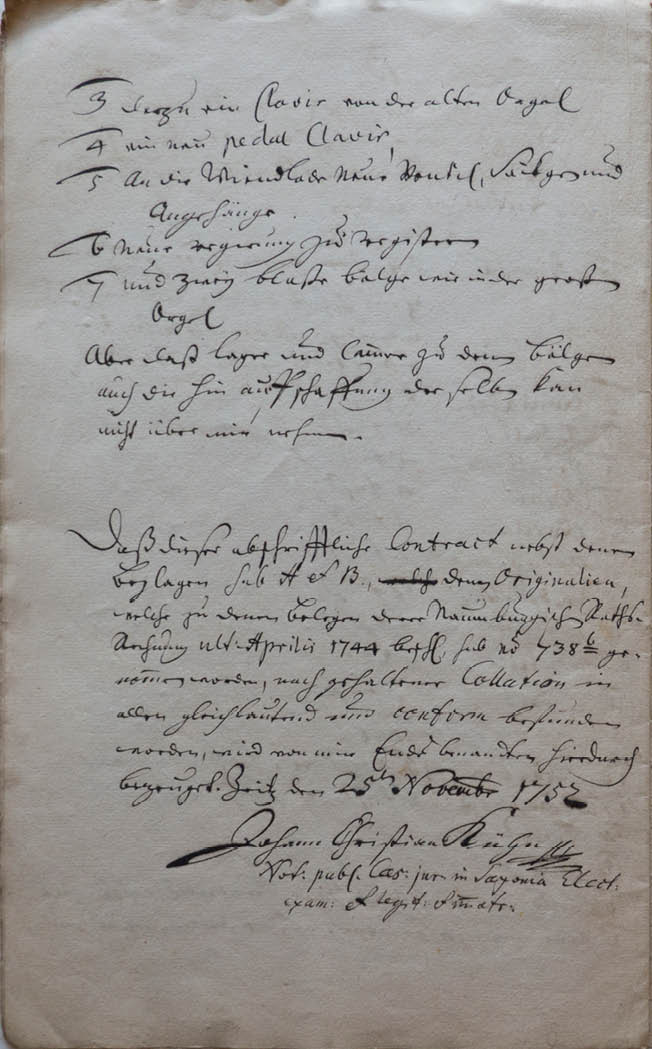 3 darzu ein Clavir von der alten Orgel
4 ein neu pedal Clavir,
5 An die Windlade neue Ventil, Säckgen und
Angehänge
6 Neue regierung zu registern
7 und zwey blasse bälge wie in der grossen
Orgel
Aber daß lager und Camer zu denen bälgen
auch die hin auffschaffung der selben kan
nicht über mir nehmen.
Daß diese abschrifftliche Contract nebst denen
Beylagen sub A et B., denen Originalien,
welche zu denen Belegen derer Naumburgisch. Raths-
Rechnung ult: Aprilis 1744 besch. sub no 738 b ge-
nommen worden, nach gehaltener Collation in
allen gleichlautend und conform befunden
worden, wird von mir Endes benandten hierdurch
bezeuget. Zeitz den 25ten Novembr 1752
Johann Christian Kühn
Not: publ. Caes: jur: in Saxonia Elect:
exam: et legit: et immatr: